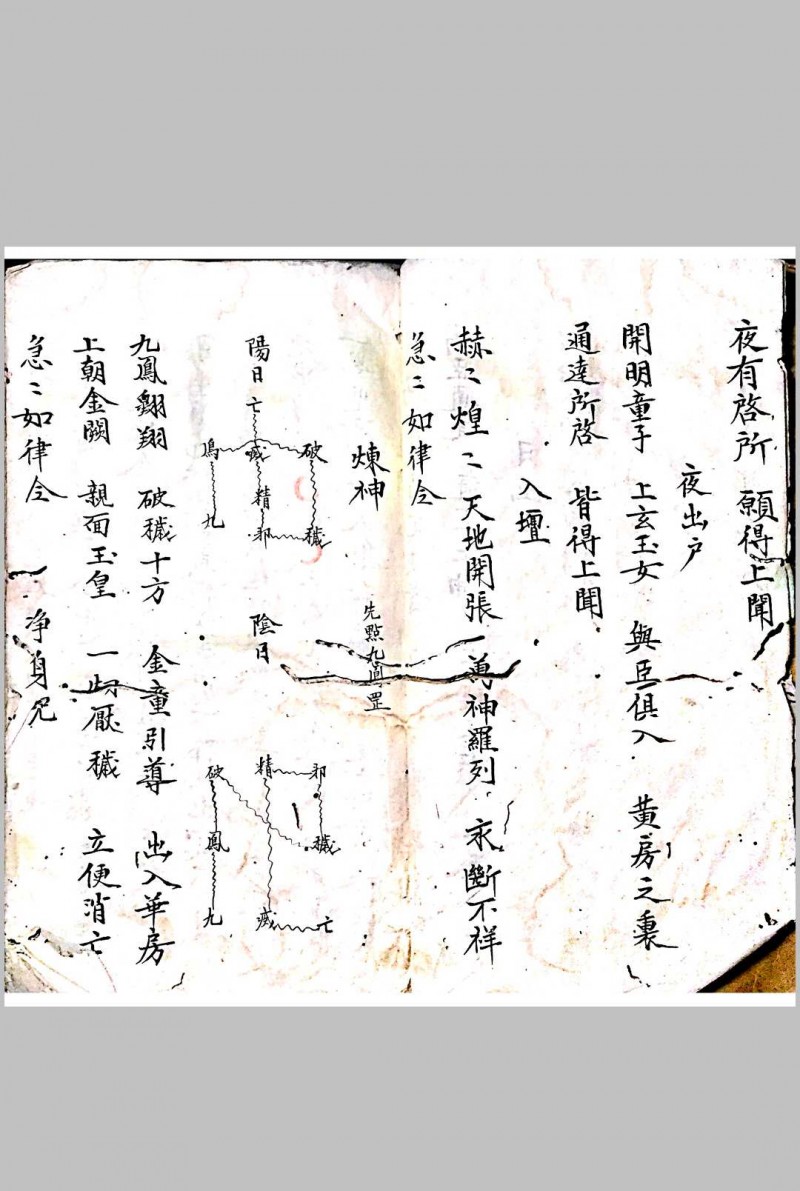 夜有啓所 願得上聞
夜出户
開明童子 上玄玉女 與臣俱入 黄房之裏
通達所啓 皆得上聞
入壇
赫〻煌〻 天地開張 萬神羅列 永斷不祥
急〻如律令
煉神
先點九鳳罡
陽日
亡
鳳 滅 破
精
九 邪 穢
陰日
破 精 邪
鳳 穢
九 滅 亡
九鳳翱翔 破穢十方 金童引導 出入華房
上朝金闕 親面玉皇 一切厭穢 立便消亡
急〻如律令 净身咒